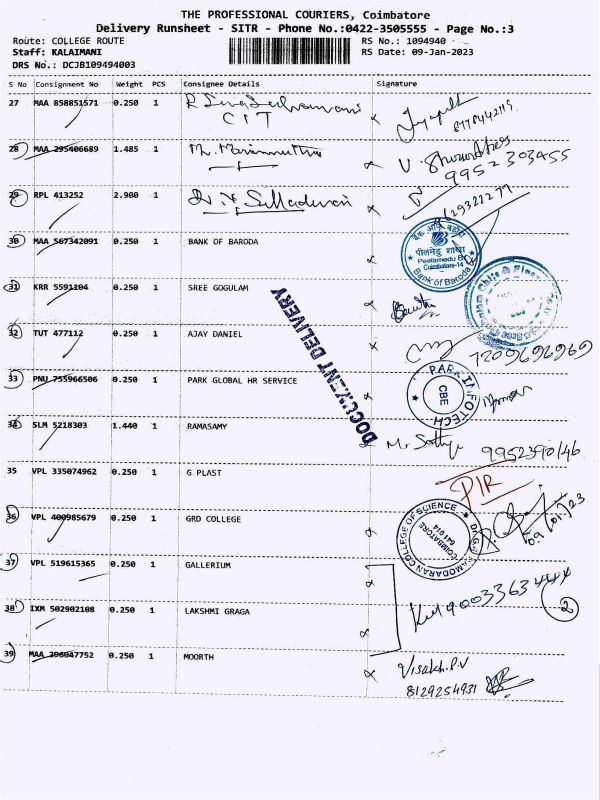 THE PROFESSIONAL COURIERS, Coimbatore
Delivery Runsheet - SITR - Phone No.:0422-3505555 - Page No.:3
Route: COLLEGE ROUTE RS No.: 1094940
Staff: KALAIMANI RS Date: 09-Jan-2023
DRS No.: DCJB109494003
S No Consignment No Weight PCS Consignee Details Signature
27 MAA 858851571 0.250 1 CIT
28 MAA 295406689 1.485 1
9952303455
29 RPL 413252 2.900 1
30 MAA 567342091 0.250 1 BANK OF BARODA
पीलमेडु शाखा
Peelamedu Br
Coimbatore-14
Bank of Baroda
31 KRR 5591104 0.250 1 SREE GOGULAM
DOCUMENT DELIVERY
32 TUT 477112 0.250 1 AJAY DANIEL
7209696969
33 PNU 755966506 0.250 1 PARK GLOBAL HR SERVICE
PARK INFOTECH
CBE
34 SLM 5218303 1.440 1 RAMASAMY
35 VPL 335074962 0.250 1 G PLAST
36 VPL 400985679 0.250 1 GRD COLLEGE
COLLEGE OF SCIENCE
COIMBATORE
641 014
37 VPL 519615365 0.250 1 GALLERIUM
38 IXM 502902108 0.250 1 LAKSHMI GRAGA
2
39 MAA 296047752 0.250 1 MOORTH
Visakh.P.V
8129254931